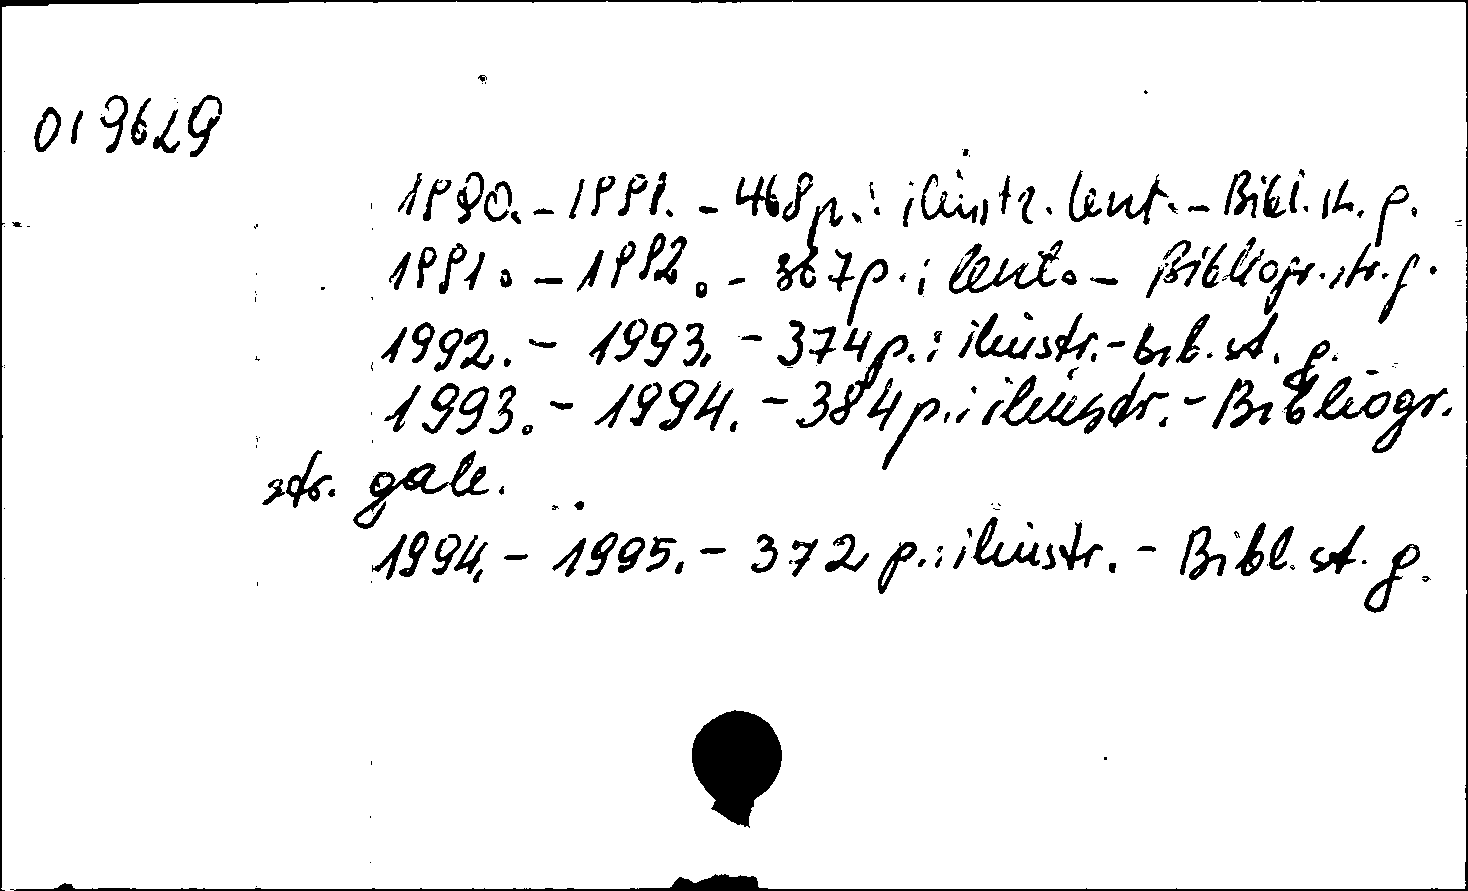 019629
1990. - 1991. - 468 p. : iliustr. lent. - Bibl. str. g.
1991. - 1992. - 367 p. : lent. - Bibliogr. str. g.
1992. - 1993. - 374 p. : iliustr. - Bibl. st. g.
1993. - 1994. - 384 p. : iliustr. - Bibliogr.
str. gale.
1994. - 1995. - 372 p. : iliustr. - Bibl. st. g.